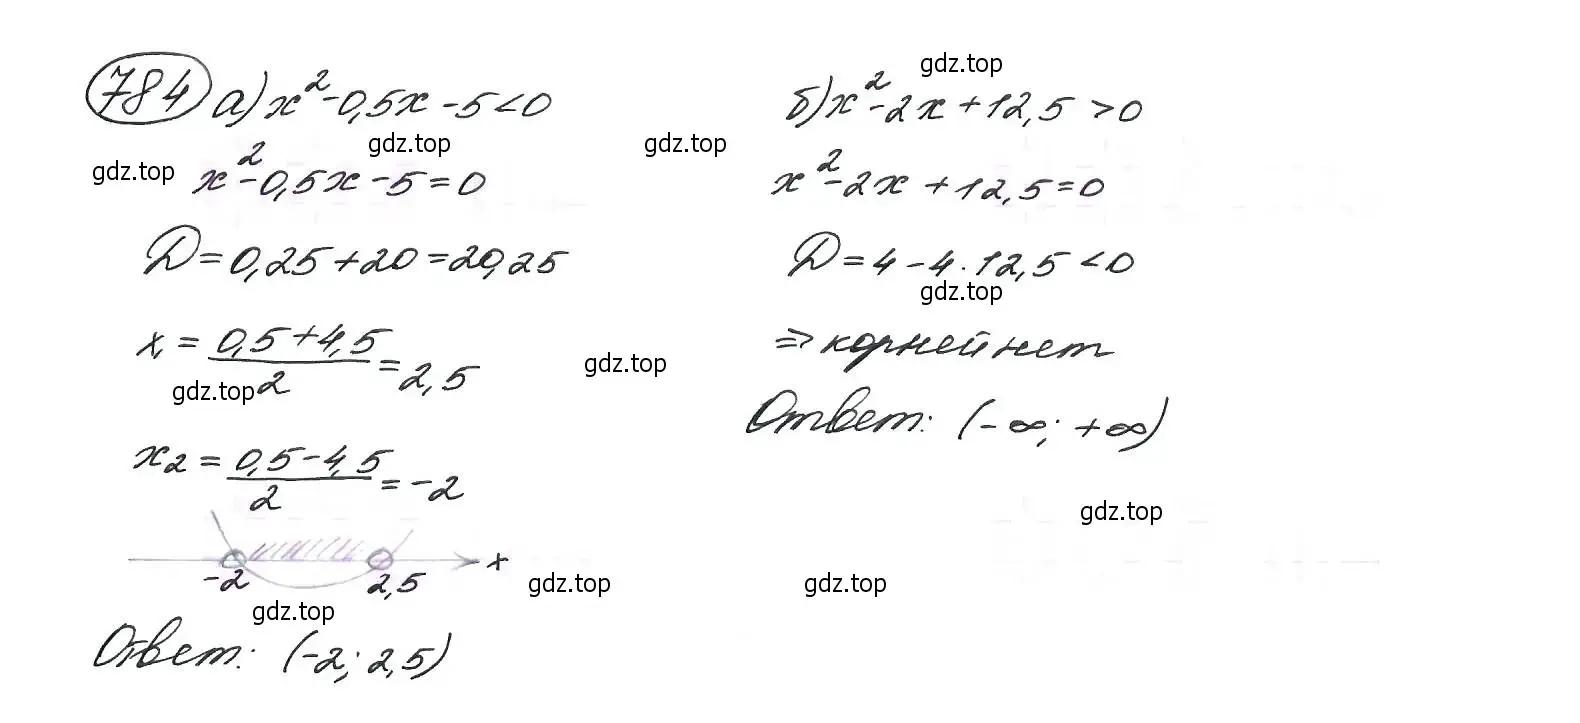 784 а) x² - 0,5x - 5 < 0
x² - 0,5x - 5 = 0
D = 0,25 + 20 = 20,25
x₁ = (0,5 + 4,5)/2 = 2,5
x₂ = (0,5 - 4,5)/2 = -2
-2 2,5 x
Ответ: (-2; 2,5)
б) x² - 2x + 12,5 > 0
x² - 2x + 12,5 = 0
D = 4 - 4 · 12,5 < 0
⇒ корней нет
Ответ: (-∞; +∞)
gdz.top
gdz.top
gdz.top
gdz.top
gdz.top
gdz.top
gdz.top
gdz.top
gdz.top
gdz.top
gdz.top